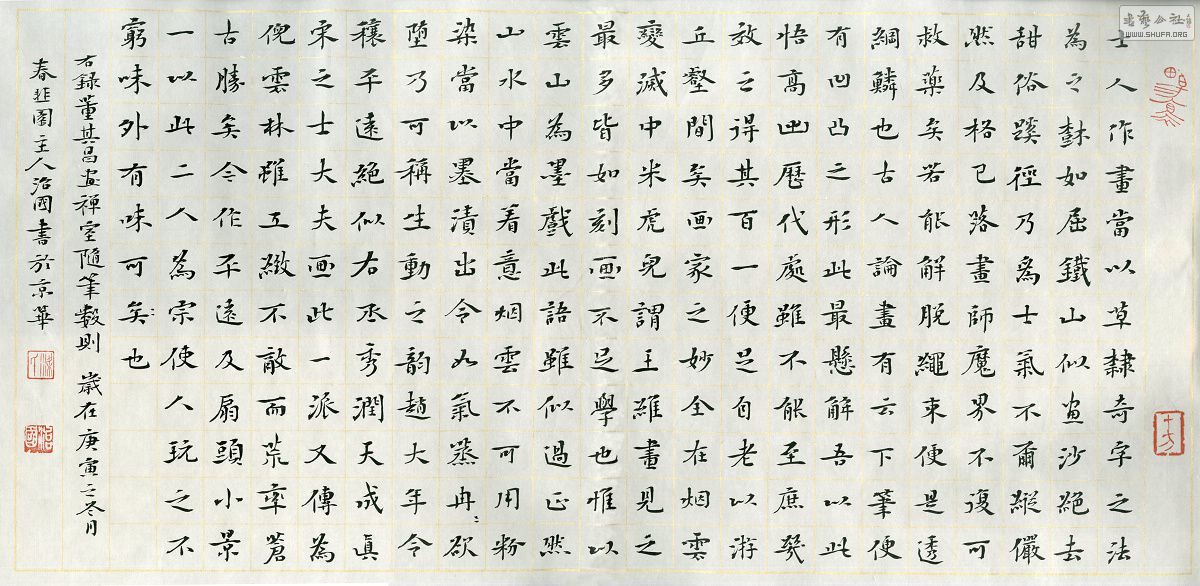 书艺公社
WWW.SHUFA.ORG
士人作畫當以草隸奇字之法
為之樹如屈鐵山似畫沙絕去
甜俗蹊徑乃為士氣不爾縱儼
然及格已落畫師魔界不復可
救藥矣若能解脫繩束便是透
網鱗也古人論畫有云下筆便
有凹凸之形此最懸解吾以此
悟高出歷代處雖不能至庶幾
效之得其百一便足自老以游
丘壑間矣画家之妙全在烟雲
變滅中米虎兒謂王維畫見之
最多皆如刻画不足學也惟以
雲山為墨戲此語雖似過正然
山水中當着意烟雲不可用粉
染當以墨漬出令如氣蒸冉〻欲
墮乃可稱生動之韵趙大年令
穰平遠絕似右丞秀潤天成真
宋之士大夫画此一派又傳為
倪雲林雖工緻不敵而荒率蒼
古勝矣今作平遠及扇頭小景
一以此二人為宗使人玩之不
窮味外有味可矣也
右録董其昌畫禪室隨筆數則 歲在庚寅之冬月
春韭園主人治國書於京華